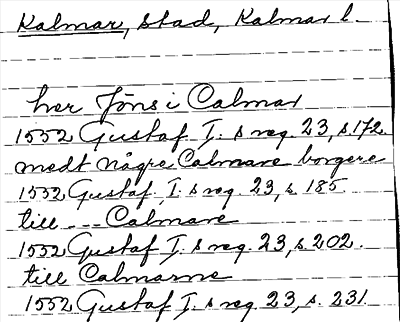 Kalmar, stad, Kalmar l.
her Jöns i Calmar
1552 Gustaf I. s reg. 23, s. 172.
medt någre Calmare borgere
1552 Gustaf I. s reg. 23, s. 185.
till --- Calmare
1552 Gustaf I. s reg. 23, s. 202.
till Calmarne
1552 Gustaf I. s reg. 23, s. 231.